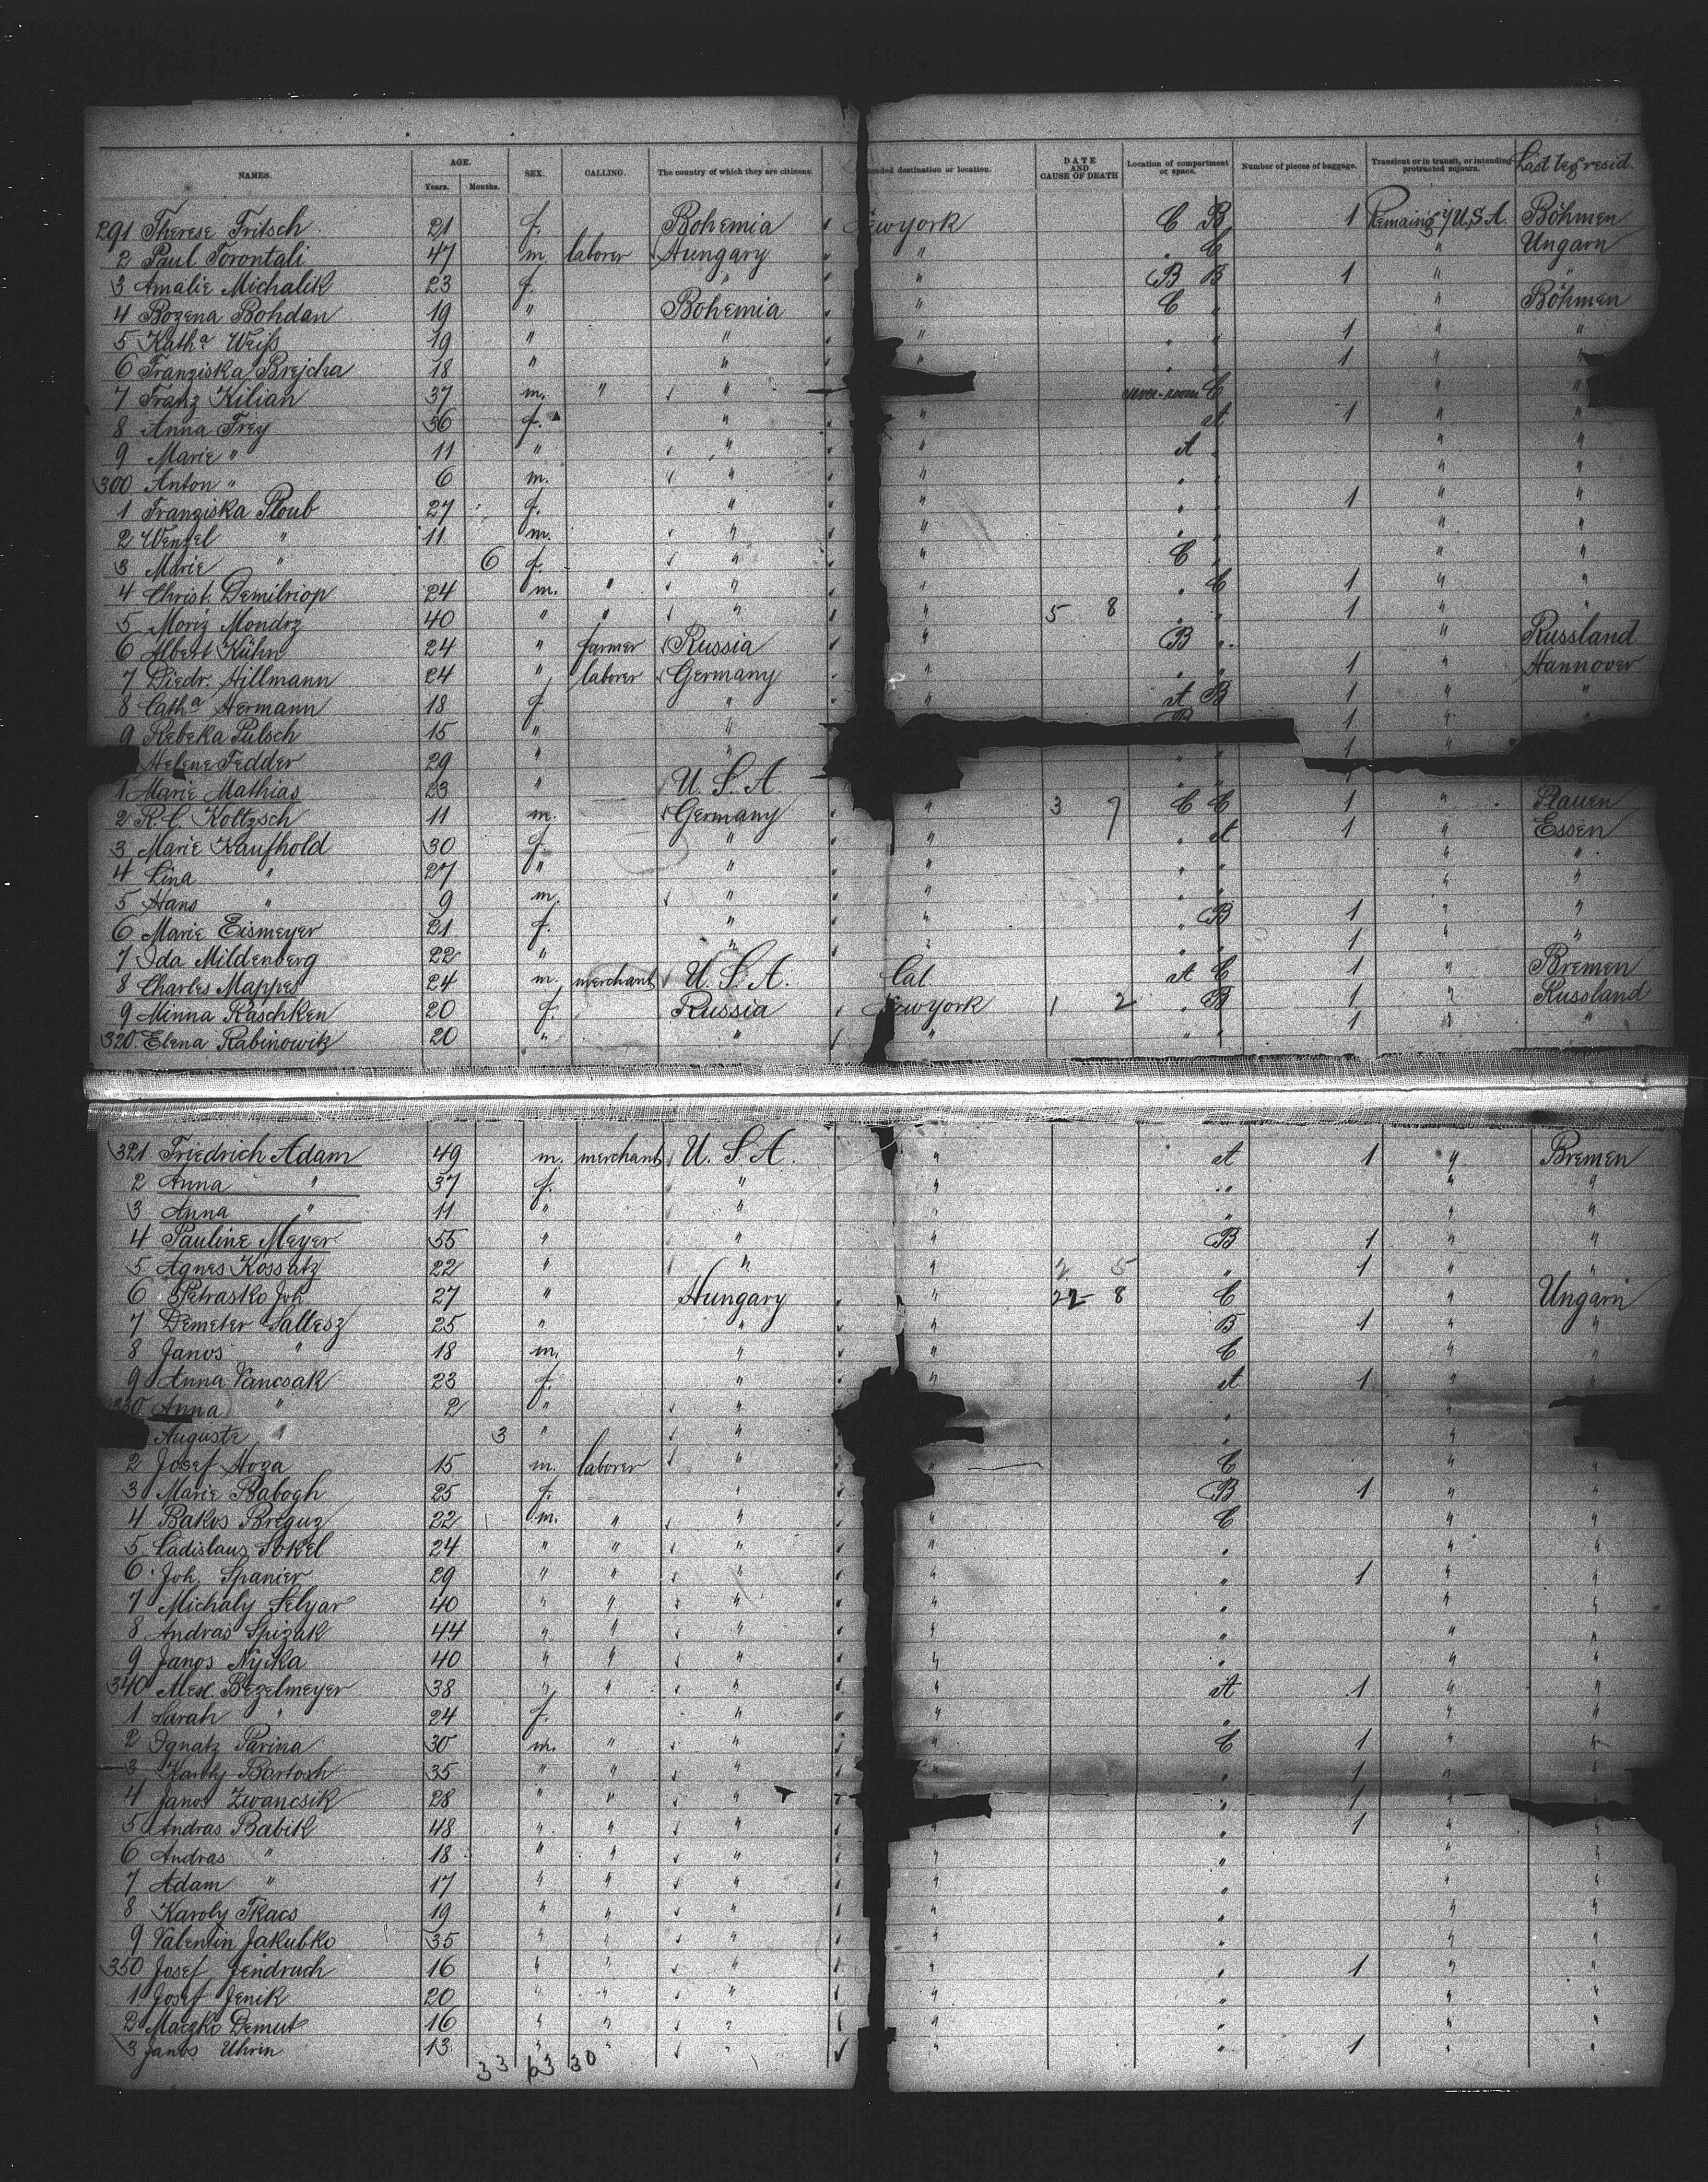 NAMES. AGE. Years. Months. SEX. CALLING. The country of which they are citizens. ended destination or location. DATE AND CAUSE OF DEATH Location of compartment or space. Number of pieces of baggage. Transient or in transit, or intending protracted sojourn. Last leg resid.
291 Therese Fritsch 21 f. Bohemia Newyork C B 1 Remaing i/ U.S.A. Böhmen
2 Paul Torontali 47 m. laborer Hungary " " C " Ungarn
3 Amalie Michalik 23 f. " " B B 1 " "
4 Bozena Bohdan 19 " Bohemia " C " " Böhmen
5 Kath.a Weiß 19 " " " " " 1 " "
6 Franziska Brejcha 18 " " " " 1 "
7 Franz Kilian 37 m. " " C " "
8 Anna Frey 36 f. " " at 1 " "
9 Marie " 11 " " " A " " "
300 Anton " 6 m. " " " " " "
1 Franziska Ploub 27 f. " " " " 1 " "
2 Wenzel " 11 m. " " " " " "
3 Marie " 6 f. " " C " "
4 Christ. Demitriop 24 m. " " " " C 1 " "
5 Moriz Mondrz 40 " " " " 5 8 " " 1 " "
6 Albert Kühn 24 " farmer Russia " B " " Russland
7 Diedr. Hillmann 24 " laborer Germany " " " 1 " Hannover
8 Cath.a Hermann 18 f. " " at B 1 " "
9 Rebeka Pülsch 15 " " B 1 " "
Helene Fedder 29 " " " " 1
1 Marie Mathias 23 " U. S. A. " "
2 R. C. Koltzsch 11 m. Germany " 3 7 C C 1 " Plauen
3 Marie Kaufhold 30 f. " " 7 " at 1 " Essen
4 Lina " 27 " " " " " " "
5 Hans " 9 m. " " " " " "
6 Marie Eismeyer 21 f. " " " B 1 " "
7 Ida Mildenberg 22 " " " " " 1 " "
8 Charles Mappes 24 m. merchant U. S. A. Cal. at C 1 " Bremen
9 Minna Raschken 20 f. Russia Newyork 1 2 " B 1 " Russland
320. Elena Rabinowitz 20 " " " " " 1 " "
321 Friedrich Adam 49 m. merchant U. S. A. " at 1 " Bremen
2 Anna " 37 f. " " " " "
3 Anna " 11 " " " " " "
4 Pauline Meyer 55 " " " B 1 " "
5 Agnes Kossatz 22 " " " 2 5 " 1 " "
6 Petrasko Joh 27 " Hungary " 22 8 C " Ungarn
7 Demeter Saltesz 25 " " " B 1 " "
8 Janos " 18 m. " " C " "
9 Anna Vancsak 23 f. " " at 1 " "
330 Anna " 2 " " " "
Auguste " 3 " " " "
2 Josef Hoza 15 m. laborer " " C " "
3 Marie Babogh 25 f. " B 1 " "
4 Bakos Breguz 22 m. " " " C " "
5 Ladislaus Sokel 24 " " " " " " "
6 Joh. Spanier 29 " " " " " 1 " "
7 Michaly Selyar 40 " " " " " " "
8 Andras Spizak 44 " " " " " " "
9 Janos Nyika 40 " " " " " " "
340 Alex. Bezelmeyer 38 " " " " at 1 " "
1 Sarah " 24 f. " " " " "
2 Ignatz Parina 30 m. " " " C 1 " "
3 Karoly Bartosh 35 " " " " 1 "
4 Janos Zwancsik 28 " " " " 1 "
5 Andras Babik 48 " " " " " 1 " "
6 Andras " 18 " " " " " " "
7 Adam " 17 " " " " " " "
8 Karoly Tkacs 19 " " " " " " "
9 Valentin Jakubko 35 " " " " " " "
350 Josef Jendruch 16 " " " " " 1 " "
1 Josef Jenik 20 " " " " " " "
2 Maczko Demut 16 " " " " " " "
3 Janos Uhrin 13 " " " " " 1 " "
33 63 30